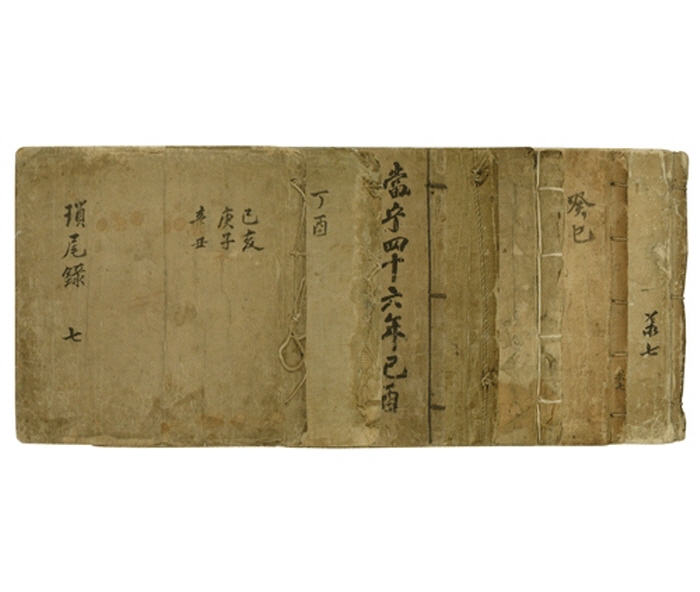 瑣尾錄 七
己亥
庚子
辛丑
丁酉
當宁四十六年己酉
癸巳
共七